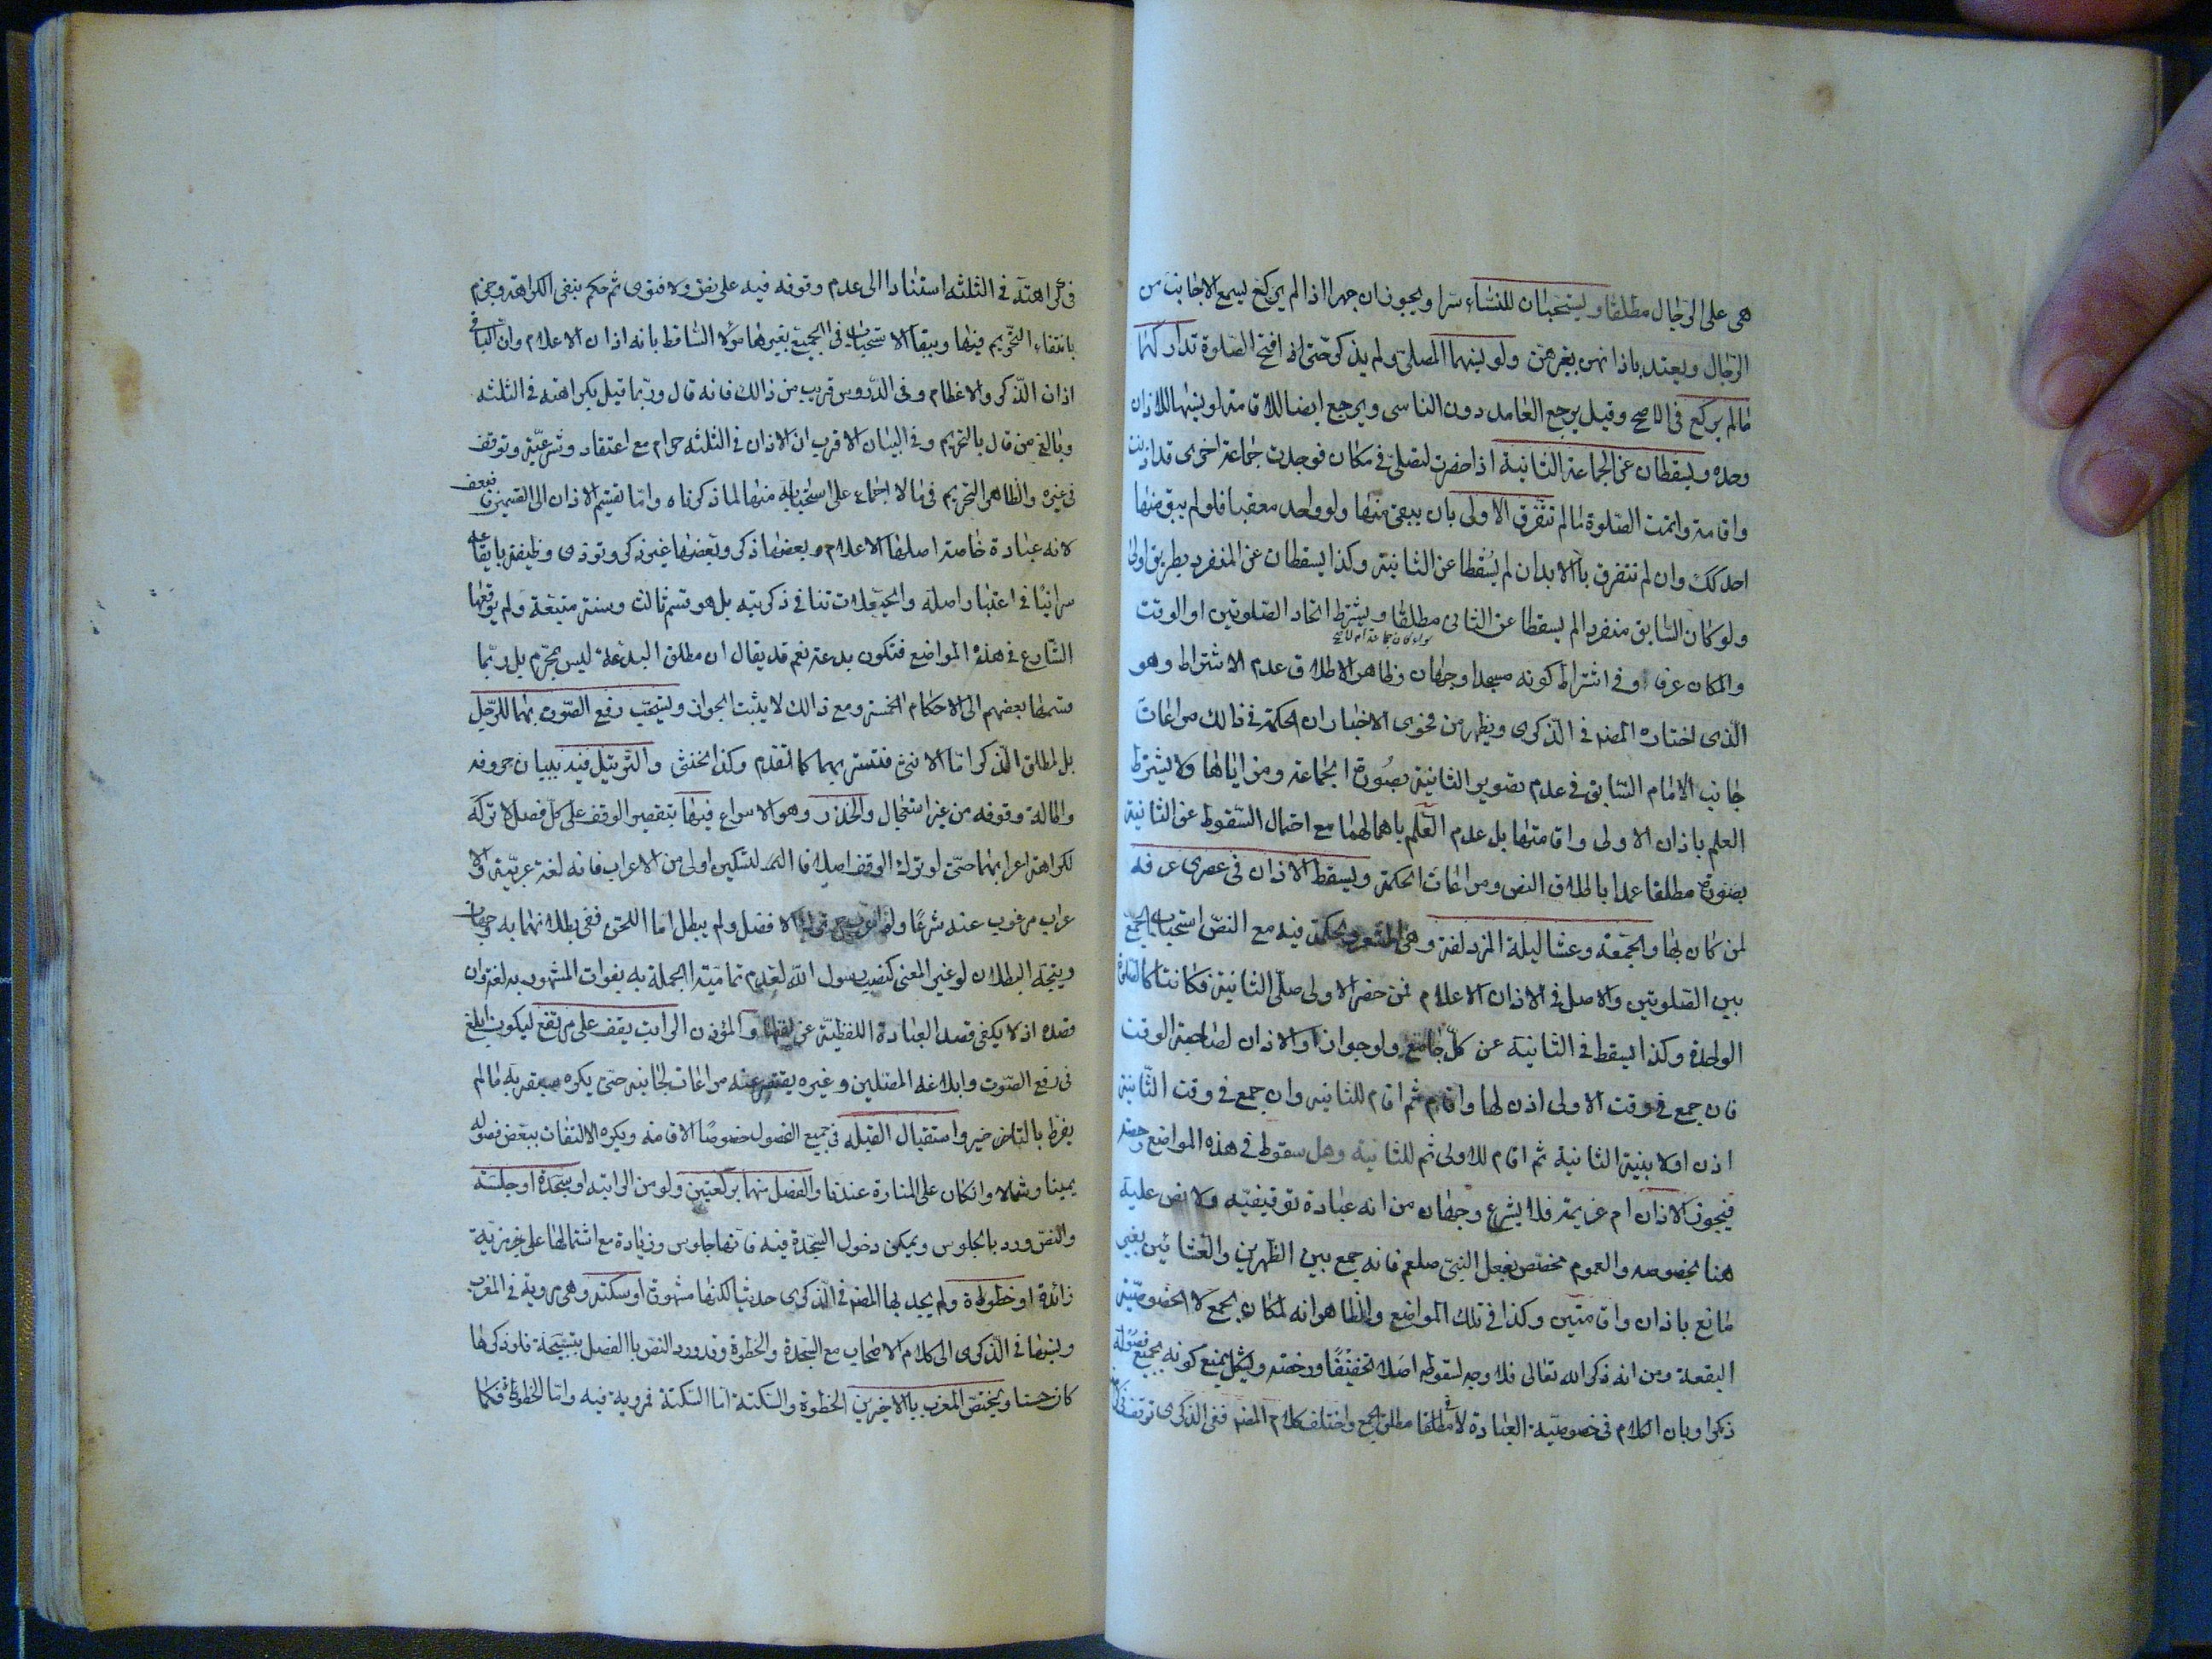 هى على الرجال مطلقا ويستحبان للنساء سرا ويجوزان جهرا اذا لم يسمع الاجانب من
الرجال ويعتد باذانهن بغيرهن ولو نسيهما المصلى ولم يذكر حتى افتتح الصلوة تداركهما
مالم يركع فى الاصح وقيل يرجع العامد دون الناسى ويرجع ايضا للاقامة لو نسيها لا للاذان
وحده ويسقطان عن الجماعة الثانية اذا حضرت لتصلى فى مكان فوجدت جماعة اخرى قد اذنت
واقامت واتمت الصلوة مالم تتفرق الاولى بان يبقى منها ولو واحد معقبا فلو لم يبق منها
احد كك وان لم تتفرق بالابدان لم يسقطا عن الثانية وكذا يسقطان عن المنفرد بطريق اولى
ولو كان السابق منفردا لم يسقطا عن الثانى مطلقا ويشترط اتحاد الصلوتين او الوقت
والمكان عرفا وفى اشتراط كونه مسجدا وجهان وظاهر الاطلاق عدم الاشتراط وهو
الذى اختاره المصنف فى الذكرى ويظهر من فحوى الاخبار ان الحكمة فى ذالك مراعات
جانب الامام السابق فى عدم تصوير الثانية بصورة الجماعة ومزاياها ولا يشترط
العلم باذان الاولى واقامتها بل عدم العلم باهمالهما مع احتمال السقوط عن الثانية
بصورة مطلقا عملا باطلاق النص ومراعات الحكمة ويسقط الاذان فى عصرى عرفه
لمن كان بها والجمعة وعشا ليلة المزدلفة وهى المشعر والحكمة فيه مع النص استحباب الجمع
بين الصلوتين والاصل فى الاذان الاعلام فمن حضر الاولى صلى الثانية فكانتا كالصلوة
الواحدة وكذا يسقط فى الثانية عن كل جامع ولو جوازا والاذان لصاحبة الوقت
فان جمع فى وقت الاولى اذن لها واقام ثم اقام للثانيه وان جمع فى وقت الثانية
اذن اولا بنية الثانية ثم اقام للاولى ثم للثانية وهل سقوطه فى هذه المواضع رخصه
فيجوز الاذان ام عزيمة فلا يشرع وجهان من انه عبادة توقيفيه ولا نص عليه
هنا بخصوصه والعموم مختص بفعل النبى صلعم فانه جمع بين الظهرين والعشائين بغير
مانع باذان واقامتين وكذا فى تلك المواضع والظاهر انه لمكان الجمع لا لخصوصية
البقعة ومن انه ذكر الله تعالى فلا وجه لسقوطه اصلا تخفيفا ورخصة ويشكل بمنع كونه بجميع فصوله
ذكرا وبان الكلام فى خصوصية العبادة لا فى مطلقها مطلق الجمع واختلف كلام المصنف ففى الذكرى توقف
فى كراهته فى الثلثه استنادا الى عدم وقوفه فيه على نص ولا فتوى ثم حكم بنفى الكراهة وجزم
بانتفاء التحريم فيها وببقاء الاستحباب فى الجميع بغيرها مؤلا الساقط بانه اذان الاعلام وان الباقى
اذان الذكر والاعظام وفى الدروس قريب من ذالك فانه قال وربما قيل بكراهته فى الثلثه
وبالغ من قال بالتحريم وفى البيان الاقرب ان الاذان فى الثلثه حرام مع اعتقاد شرعيته وتوقف
فى غيره والظاهر التحريم فيما لا اجماع على استحبابه منها لما ذكرناه واما تقسيم الاذان الى القسمين فضعف
لانه عبادة خاصة اصلها الاعلام وبعضها ذكر وبعضها غير ذكر وتؤدى وظيفته بايقاعه
سرا نيافى اعتبار اصله والحيعلات تنافى ذكريته بل هو قسم ثالث وسنة متبعة ولم يوقعها
الشارع فى هذه المواضع فتكون بدعة نعم قد يقال ان مطلق البدعة ليس بمحرم بل ربما
قسمها بعضهم الى الاحكام الخمسة ومع ذالك لا يثبت الجواز ويستحب رفع الصوت بهما للرجل
بل لمطلق الذكر اما الانثى فتستر بهما كما تقدم وكذا الخنثى والترتيل فيه ببيان حروفه
واطالة وقوفه من غير استعجال والحدر وهو الاسراع فيها بتقصير الوقف على كل فصل لا تركه
لكراهة اعرابهما حتى لو ترك الوقف اصلا فالتسكين اولى من الاعراب فانه لغة عربية والا
عراب مرغوب عنه شرعا ولو اعرب حينئذ ترك الافضل ولم يبطل اما اللحن ففى بطلانهما به وجهان
ويتجه البطلان لو غير المعنى كنصب رسول الله لعدم تمامية الجملة به بفوات المشهود به لغة وان
قصده اذ لا يكفى قصد العبادة اللفظية عن لفظها والمؤذن الراتب يقف على مرتفع ليكون ابلغ
فى رفع الصوت وابلاغه المصلين وغيره يقتصر عنه مراعات لجانبه حتى يكره سبقه به مالم
يفرط بالتاخير واستقبال القبله فى جميع الفصول خصوصا الاقامة ويكره الالتفات ببعض فصوله
يمينا وشمالا وانكان على المنارة عندنا والفصل بينهما بركعتين ولو من الراتبه او بسجدة او جلسة
والنص ورد بالجلوس ويمكن دخول السجدة فيه فانها جلوس وزيادة مع اشتمالها على مزية
زائدة او خطوة ولم يجد بها المصنف فى الذكرى حديثا لكنها مشهورة او سكتة وهى مروية فى المغرب
ونسبها فى الذكرى الى كلام الاصحاب مع السجدة والخطوة وقد ورد النص بالفصل بتسبيحة فلو ذكرها
كان حسنا ويختص المغرب بالاخيرين الخطوة والسكتة اما السكتة فمروية فيه واما الخطوة فكما